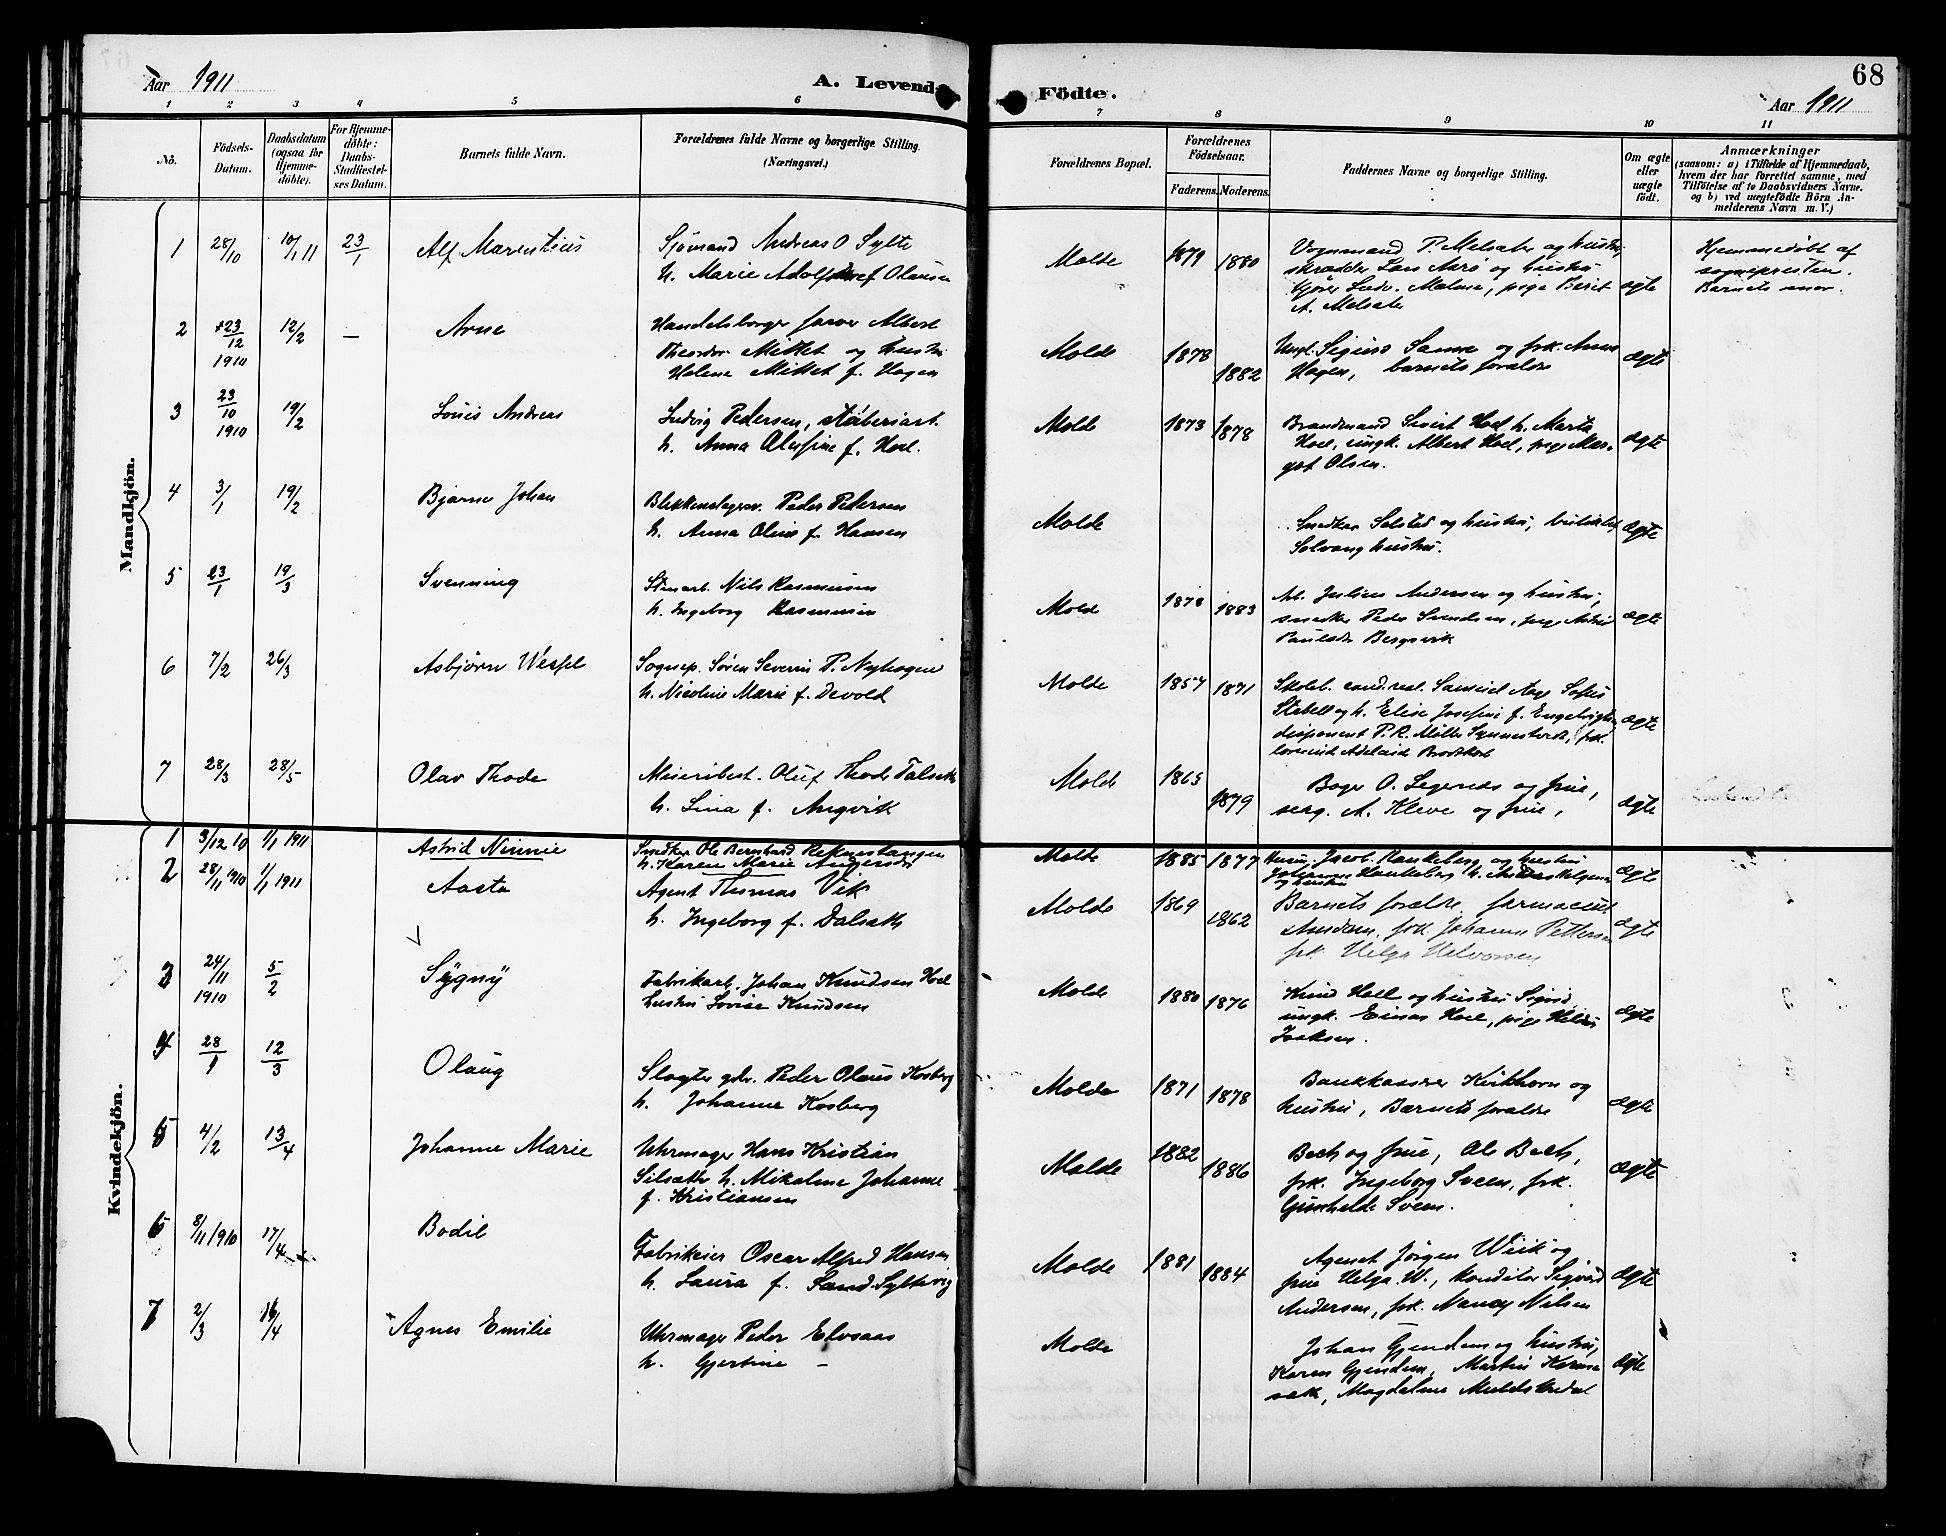 68
Aar 1911
A. Levende
Födte.
Aar 1911
1 2 3 4 5 6 7 8 9 10 11
No.
Födsels-Datum.
Daabsdatum (ogsaa for Hjemme-döbte).
For Hjemme-döbte: Daabs-Stadfæstel-ses Datum.
Barnets fulde Navn.
Forældrenes fulde Navne og borgerlige Stilling.
(Næringsvei.)
Forældrenes Bopæl.
Forældrenes Födselsaar.
Faderens. Moderens.
Faddernes Navne og borgerlige Stilling.
Om ægte eller uægte födt.
Anmærkninger
(saasom: a) i Tilfælde af Hjemmedaab,
hvem der har forrettet samme, med
Tilföielse af to Daabsvidners Navne,
og b) ved uægtefödte Börn An-
melderens Navn m. V.)
Mandkjön.
1 28/10 10/1 11 23/1 Alf Marentius
Sjömand Andreas O. Sylte
h. Marie f. Olausen
Molde 1879 1880
Vognmand P. Melsæter og hustru,
skrædder Lars Aarö og hustru
Malme, pige Berit
A. Melsæter
ægte
Hjemmedöbt af
sognepresten.
Barnets mor.
2 23/12 1910 12/2 — Arne
Handelsborger farver Albert
Theodor Mittet og hustru
Helene Mittet f. Hagen
Molde 1878 1882
Ungk. Sigurd Sanne og frk. Anna
Hagen, barnets forældre
ægte
3 23/10 1910 19/2 Louis Andreas
Ludvig Pedersen, stöberiarb.
h. Anna Olufine f. Hoel.
Molde 1873 1878
Brandmand Sivert Hoel h. Marta
Hoel, ungk. Albert Hoel, pige Mar-
got Olsen.
ægte
4 3/1 19/2 Bjarne Johan
Blikkenslagersv. Peder Pedersen
h. Anna Oline f. Hansen
Molde
Snedker Solstad og hustru,
Solvang hustru.
ægte
5 23/1 19/3 Svenning
Stenarb. Nils Rasmussen
h. Ingeborg Rasmussen
Molde 1878 1883
Arb. Julius Andersen og hustru,
snedker Peder Svendsen, pige Astrid
Bergsvik
ægte
6 7/2 26/3 Asbjörn Wessel
Sognep. Sören Severin P. Nyhagen
h. Nicoline Marie f. Devold
Molde 1857 1871
Skoleb. cand. real. Samuel Aage Sofus
Stabell og h. Elise Josefine f.
disponent P. R. Möller
Adelaide
ægte
7 28/3 28/5 Olav Thode
Meieribest. Oluf Thode Talseth
h. Lina f. Angvik
Molde 1865 1879
Bager O. Legernes og frue,
serg. A. Kleve og frue,
ægte
Kvindekjön.
1 3/12 10 1/1 1911 Astrid Ninnie
Snedker Ole Bernhard Reknestangen
h. Karen Marie Andersdt.
Molde 1885 1877
Jacob og hustru
ægte
2 28/11 1910 1/1 1911 Aasta
Agent Thomas Vik
h. Ingeborg f. Dalseth
Molde 1869 1862
Barnets forældre, farmaceut
frk. Johanne Pettersen
frk. Helga Halvorsen
ægte
3 24/11 1910 5/2 Sÿgnÿ
Fabrikarb. Johan Knudsen Hoel
hustru Lovise Knudsen
Molde 1880 1876
Knud Hoel og hustru Sigrid
ungk. Einar Hoel, pige Hilda
Isaksen.
ægte
4 28/1 12/3 Olaug
Slagter gdr. Peder Olaus Kosberg
h. Johanne Kosberg
Molde 1871 1878
Bankkasserer Kirkhorn og
hustru, Barnets forældre
ægte
5 4/2 13/4 Johanne Marie
Uhrmager Hans Kristian
Silseth h. Mikaline Johanne
f. Kristiansen
Molde 1882 1886
Bech og frue, Ole Bech,
frk. Ingeborg Sveen, frk.
Gunhilde Sveen.
ægte
6 8/11 1910 17/4 Bodil
Fabrikeier Oscar Alfred Hansen
h. Laura f. Sand Syltevig
Molde 1881 1884
Agent Jörgen Wiik og
frue Helga W., konditor Sigurd
Andersen, frk. Nancy Nilsen
ægte
7 2/3 16/4 Agnes Emilie
Uhrmager Peder Elvsaas
h. Gjertine —
Molde
Johan Gjendem og hustru,
Karen Gjendem, Martin
Magdalene
ægte